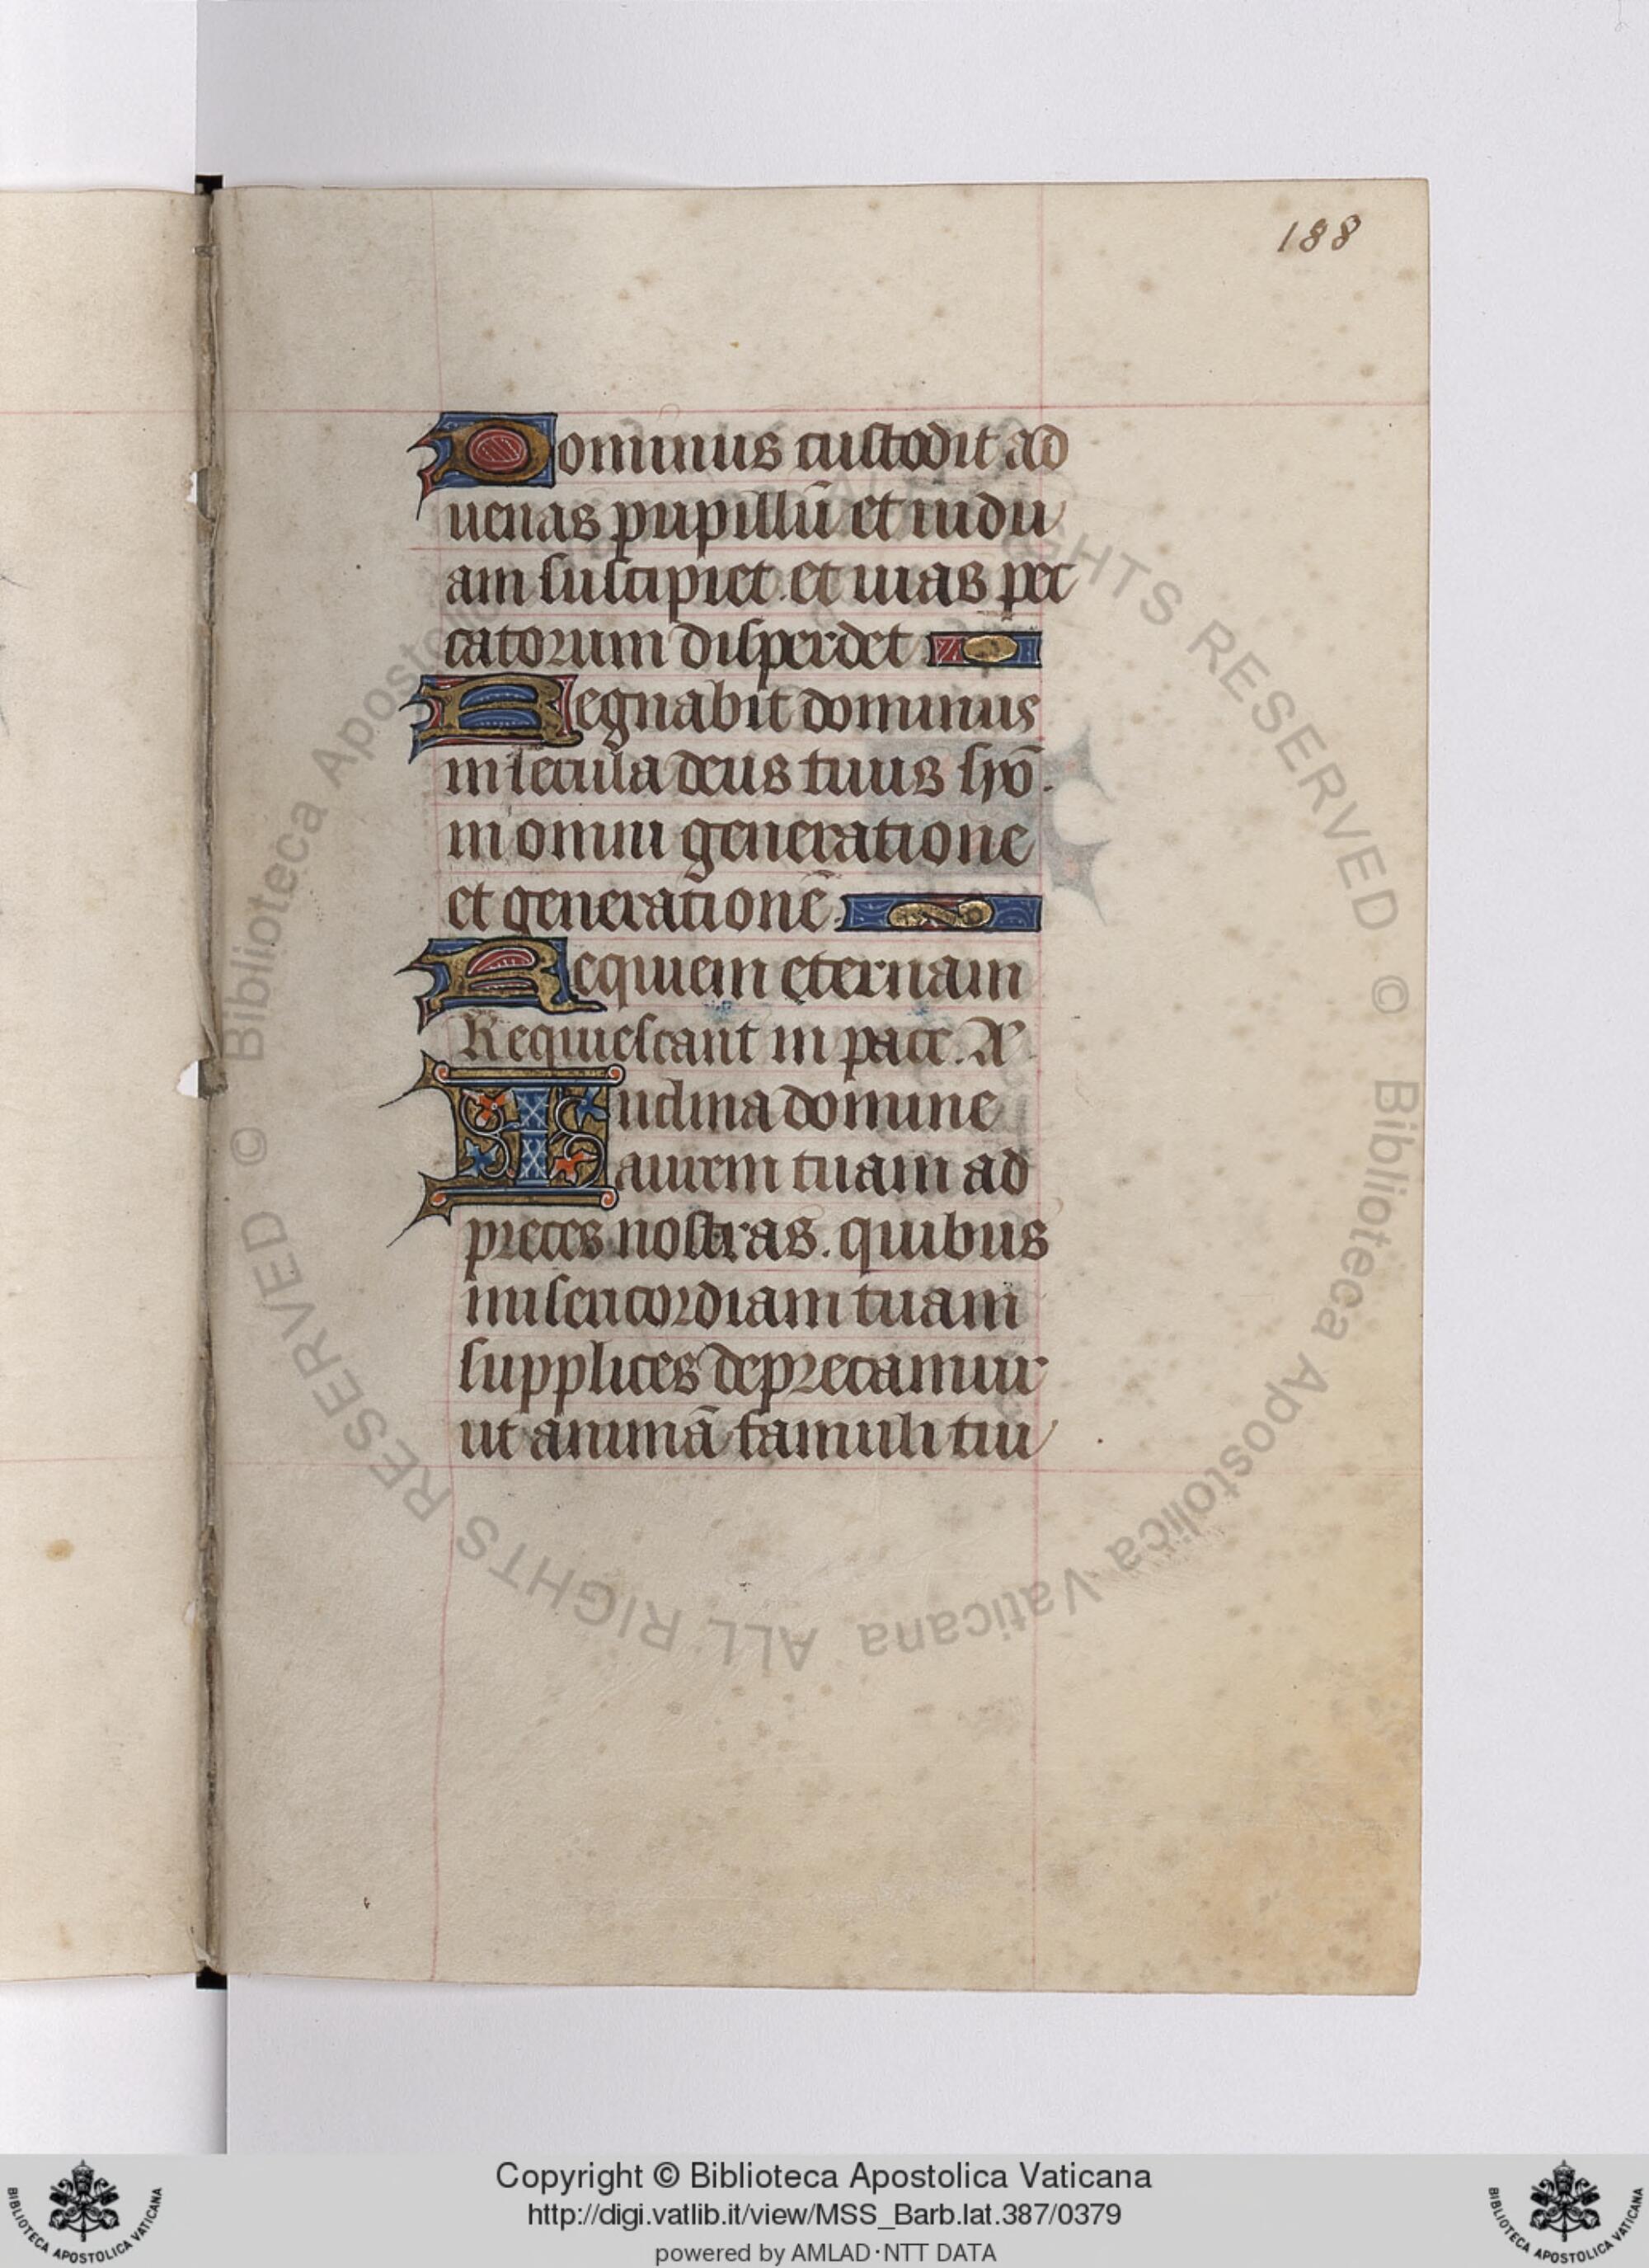 188
Dominus custodit ad
uenas pupillū et uidu
am suscipiet. et uias pec
catorum disperdet
Regnabit dominus
in secula deus tuus syō.
in omni generatione
et generationē.
Requiem eternam
Requiescant in pace. A
Inclina domine
aurem tuam ad
preces nostras. quibus
misericordiam tuam
supplices deprecamur
ut animā famuli tui
© Biblioteca Apostolica Vaticana ALL RIGHTS RESERVED
© Biblioteca Apostolica Vaticana ALL RIGHTS RESERVED
Copyright © Biblioteca Apostolica Vaticana
http://digi.vatlib.it/view/MSS_Barb.lat.387/0379
powered by AMLAD·NTT DATA
BIBLIOTECA APOSTOLICA VATICANA
BIBLIOTECA APOSTOLICA VATICANA